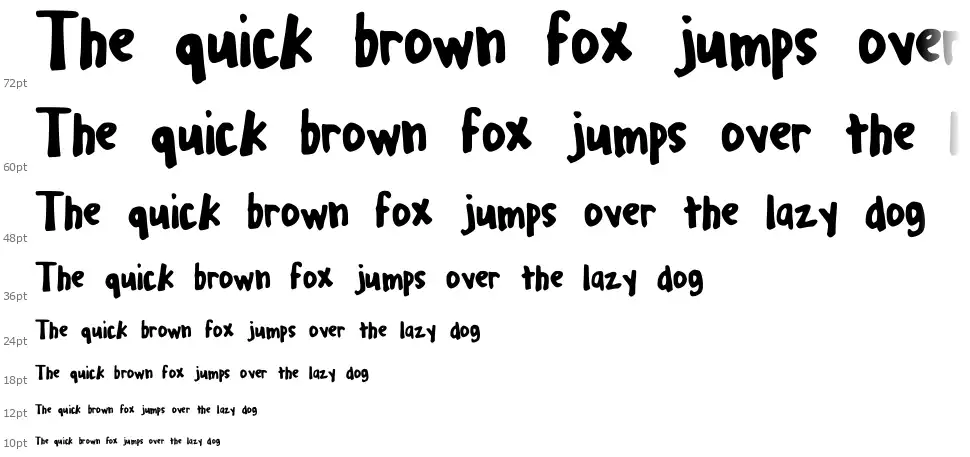 The quick brown fox jumps over
72pt
The quick brown fox jumps over the
60pt
The quick brown fox jumps over the lazy dog
48pt
The quick brown fox jumps over the lazy dog
36pt
The quick brown fox jumps over the lazy dog
24pt
The quick brown fox jumps over the lazy dog
18pt
The quick brown fox jumps over the lazy dog
12pt
The quick brown fox jumps over the lazy dog
10pt